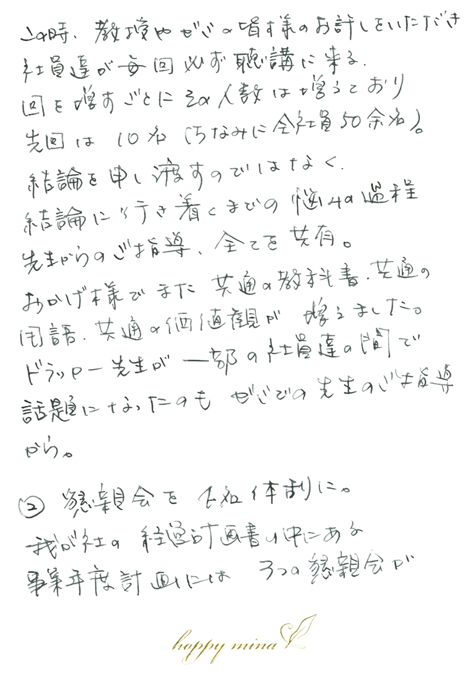 この時、教授やゼミの皆様のお許しをいただき
社員達が毎回必ず聴講に来る。
回を増すごとにその人数は増えており
先回は10名(ちなみに全社員50余名)。
結論を申し渡すのではなく、
結論に行き着くまでの悩みの過程
先生からのご指導、全てを共有。
おかげ様でまた共通の教科書、共通の
用語、共通の価値観が増えました。
ドラッカー先生が一部の社員達の間で
話題になったのもゼミでの先生のご指導
から。
② 懇親会を
我が社の経営計画書の中にある
事業年度計画には3つの懇親会が
happy mina